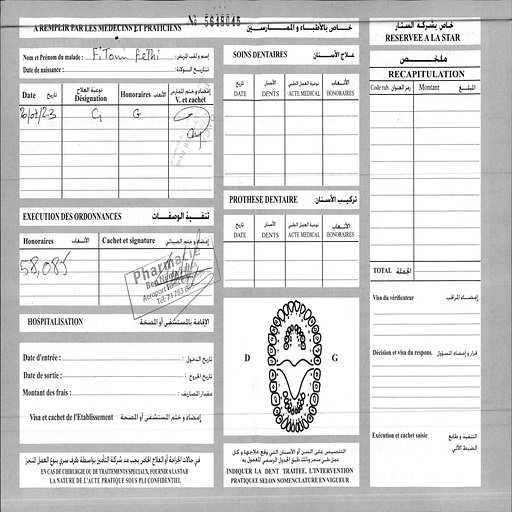 № 5648045
A REMPLIR PAR LES MEDECINS ET PRATICIENS
خـاص بـالأطبـاء و الممـارسـين
Nom et Prénom du malade : Fitouri Fethi إسم ولقب المريض :
Date de naissance : تاريخ الولادة :
Date تاريخ
نوعية العلاج
Désignation
Honoraires الأتعاب
إمضاء و ختم الممارس
V. et cachet
20/07/23 C1 G
EXECUTION DES ORDONNANCES تنفيذ الوصفات
Honoraires الأتعاب Cachet et signature إمضاء و ختم الصيدلي
58,085
Pharmacie
HOSPITALISATION الإقامة بالمستشفى أو المصحة
Date d'entrée : تاريخ الدخول :
Date de sortie : تاريخ الخروج :
Montant des frais : مقدار المصاريف :
Visa et cachet de l'Etablissement إمضاء و ختم المستشفى أو المصحة
في حالات الجراحة أو العلاج الخاص يجب مد شركة التأمين بواسطة ظرف سري بنوع العمل المنجز
EN CAS DE CHIRURGIE OU DE TRAITEMENTS SPECIAUX, FOURNIR A LA STAR
LA NATURE DE L'ACTE PRATIQUE SOUS PLI CONFIDENTIEL
SOINS DENTAIRES علاج الأسنان
تاريخ الأسنان نوعية العمل الطبي الأتعاب
DATE DENTS ACTE MEDICAL HONORAIRES
PROTHESE DENTAIRE تركيب الأسنان
تاريخ الأسنان نوعية العمل الطبي الأتعاب
DATE DENTS ACTE MEDICAL HONORAIRES
D G
التنصيص على السن أو الأسنان التي وقع علاجها و كل
عمل طبي منجز وذلك طبق الجدول الرسمي المعمول به
INDIQUER LA DENT TRAITEE, L'INTERVENTION
PRATIQUEE SELON NOMENCLATURE EN VIGUEUR
خاص بشركة الستار
RESERVEE A LA STAR
ملخص
RECAPITULATION
Code rub. رمز العنوان Montant المبلغ
TOTAL الجملة
Visa du vérificateur إمضاء المراقب
Décision et visa du respons. قرار و إمضاء المسؤول
Exécution et cachet saisie التنفيذ و طابع
الضبط الآلي